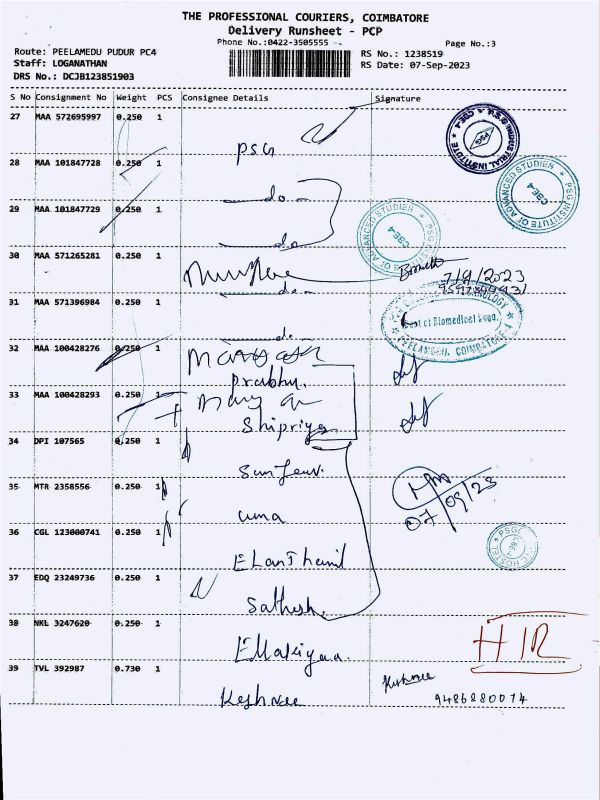 THE PROFESSIONAL COURIERS, COIMBATORE
Delivery Runsheet - PCP
Phone No.:0422-3505555
Page No.:3
Route: PEELAMEDU PUDUR PC4
Staff: LOGANATHAN
DRS No.: DCJB123851903
RS No.: 1238519
RS Date: 07-Sep-2023
S No Consignment No Weight PCS Consignee Details Signature
27 MAA 572695997 0.250 1
PSG
P.S.G INDUSTRIAL INSTITUTE * CBE-4
PSG
28 MAA 101847728 0.250 1
do
PSG INSTITUTE OF ADVANCED STUDIES
CBE-4
29 MAA 101847729 0.250 1
do
PSG INSTITUTE OF ADVANCED STUDIES
CBE-4
30 MAA 571265281 0.250 1
do
7/9/2023
31 MAA 571396984 0.250 1
do
TECHNOLOGY
Dept of Biomedical Engg.
PEELAMEDU, COIMBATORE-4
32 MAA 100428276 0.250 1
Prabhu.
33 MAA 100428293 0.250 1
Shipriya
34 DPI 107565 0.250 1
35 MTR 2358556 0.250 1
uma
07/09/23
36 CGL 123000741 0.250 1
ELanThamil
PSG
HOSTEL
37 EDQ 23249736 0.250 1
Sathesh.
38 NKL 3247620 0.250 1
39 TVL 392987 0.730 1
Keshnee
Keshnee
9486880074